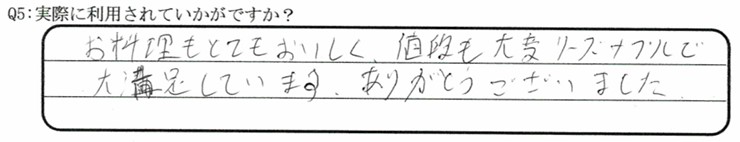 Q5:実際に利用されていかがですか？
お料理もとてもおいしく、値段も大変リーズナブルで
大満足しています。ありがとうございました。